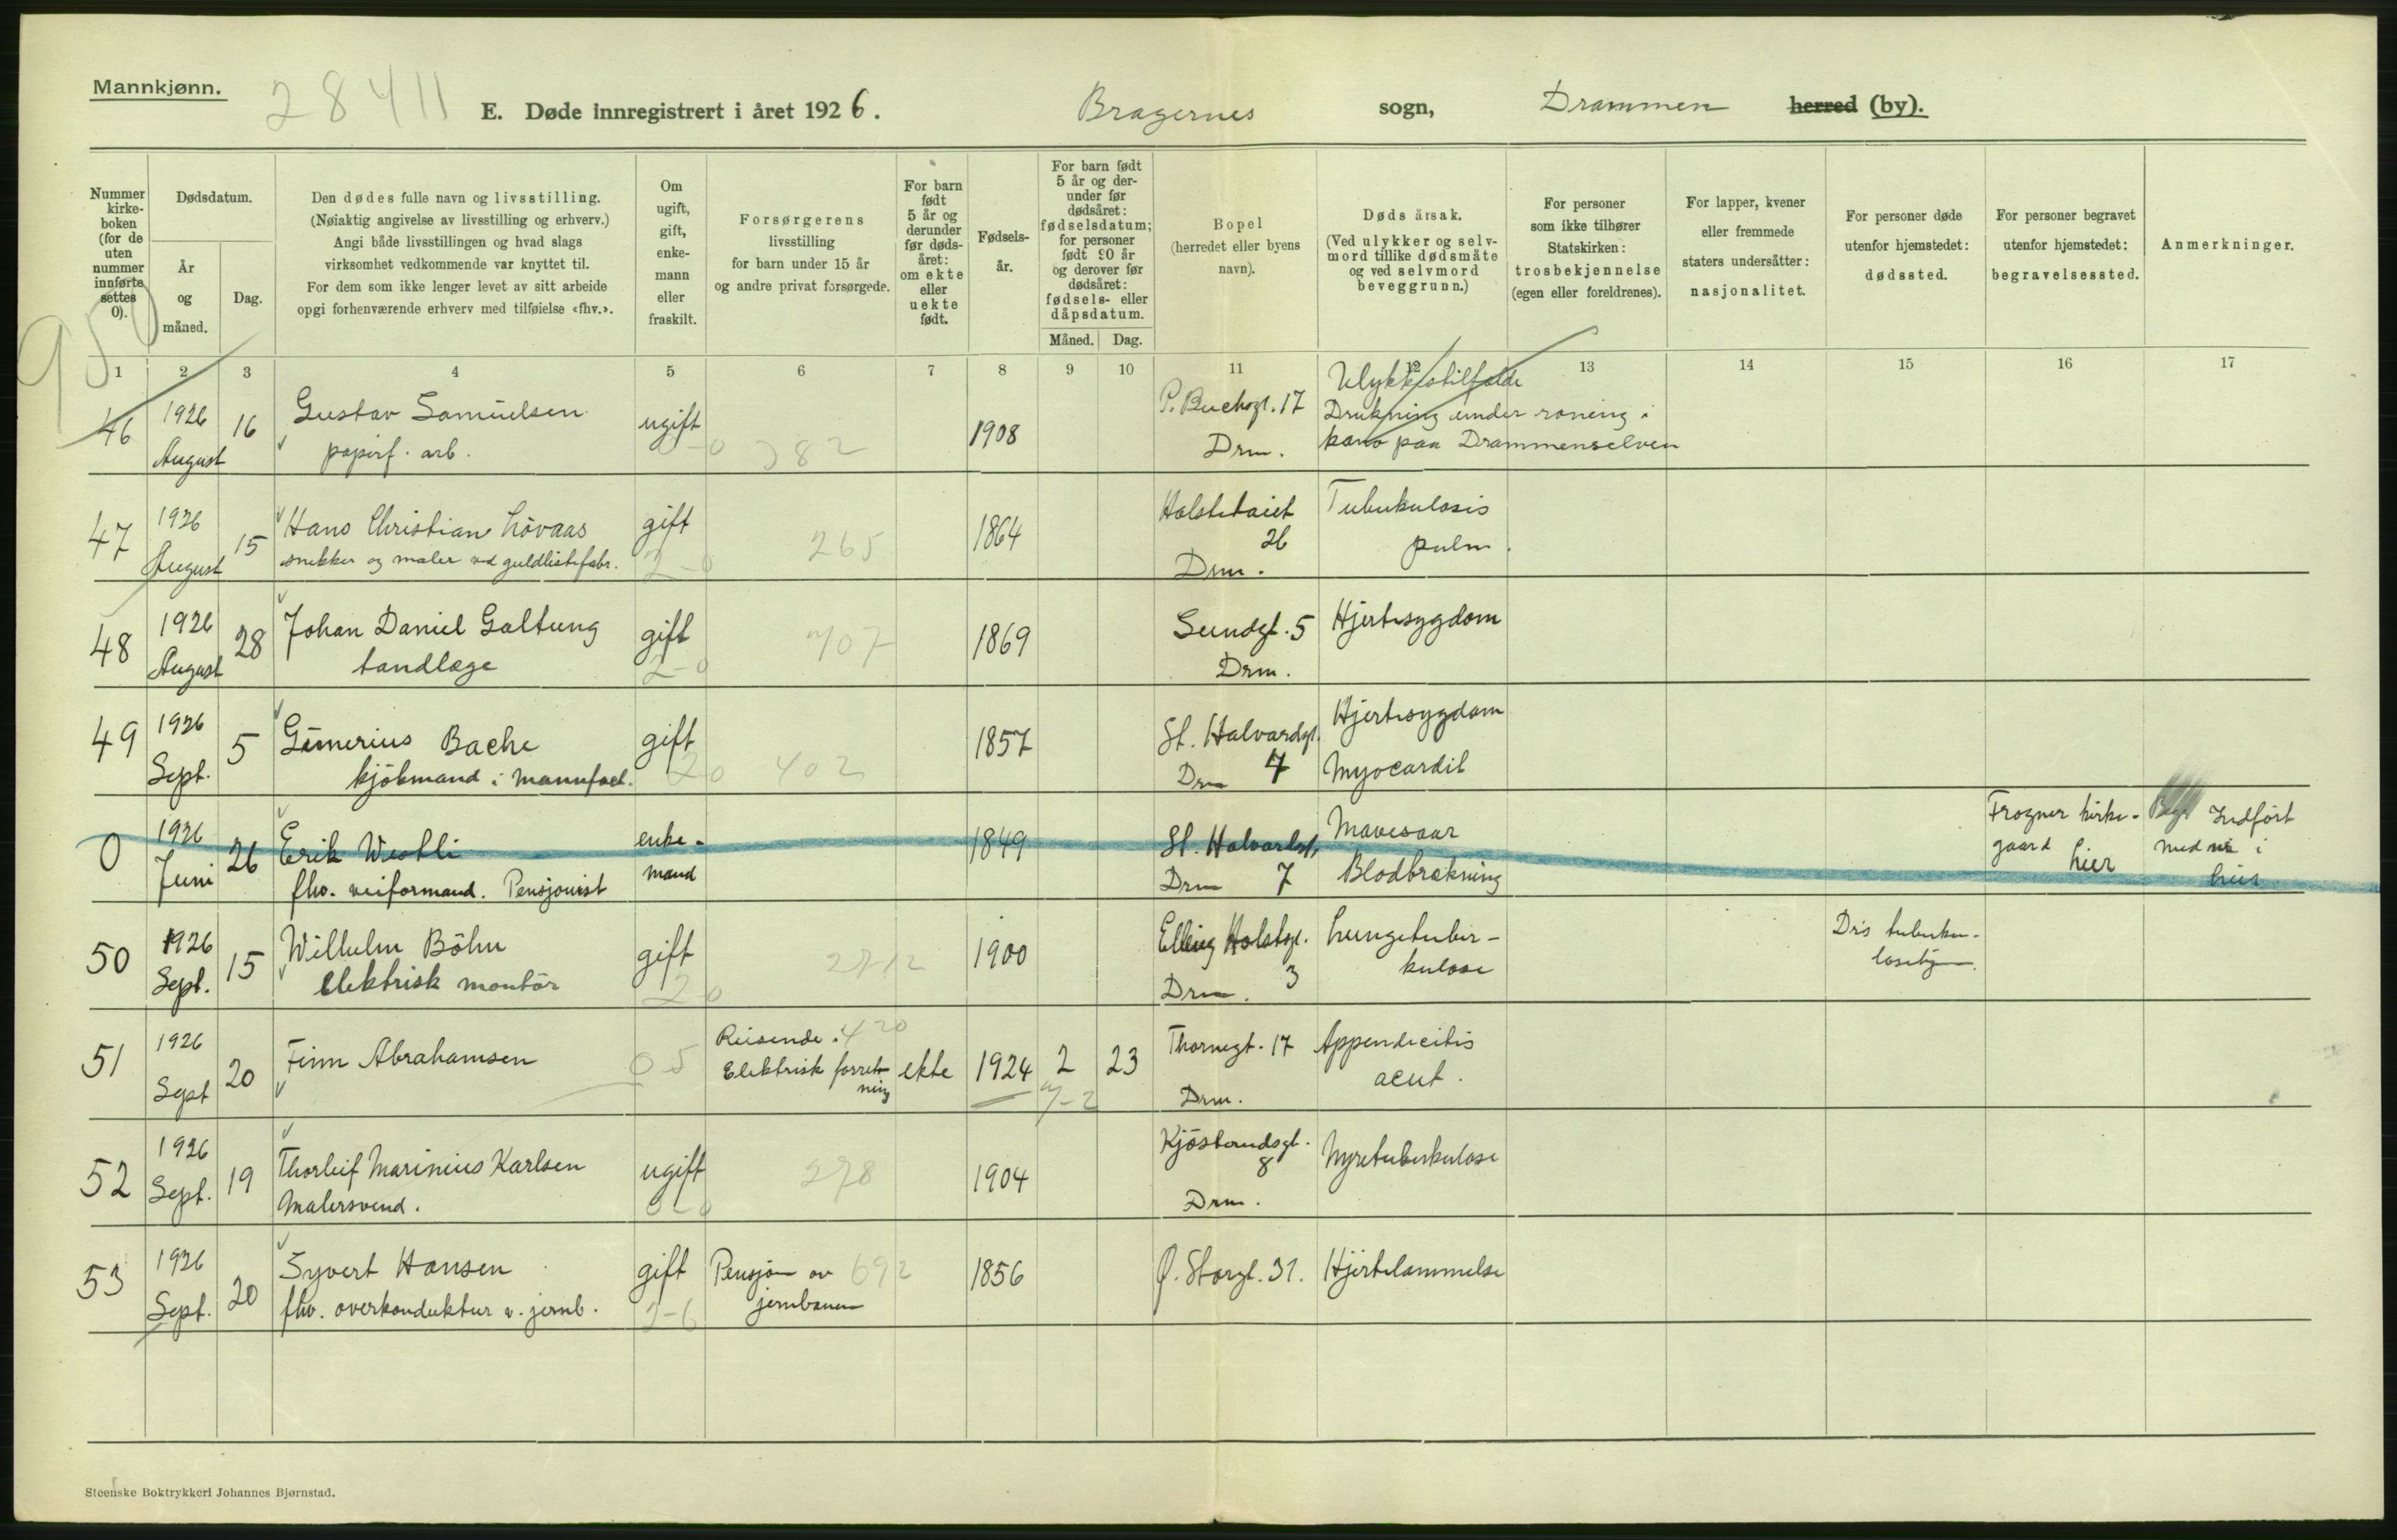 Mannkjønn.
28411
E. Døde innregistrert i året 1926.
Bragernes sogn, Drammen herred (by).
Nummer kirke-boken (for de uten nummer innførte settes 0).
Dødsdatum.
År og måned.
Dag.
Den dødes fulle navn og livsstilling.
(Nøiaktig angivelse av livsstilling og erhverv.)
Angi både livsstillingen og hvad slags
virksomhet vedkommende var knyttet til.
For dem som ikke lenger levet av sitt arbeide
opgi forhenværende erhverv med tilføielse «fhv.».
Om ugift, gift, enke-mann eller fraskilt.
Forsørgerens
livsstilling
for barn under 15 år
og andre privat forsørgede.
For barn født 5 år og derunder før døds-året: om ekte eller uekte født.
Fødsels-år.
For barn født 5 år og der-under før dødsåret: fødselsdatum; for personer født 90 år og derover før dødsåret: fødsels- eller dåpsdatum.
Måned. Dag.
Bopel
(herredet eller byens
navn).
Døds årsak.
(Ved ulykker og selv-
mord tillike dødsmåte
og ved selvmord
beveggrunn.)
For personer
som ikke tilhører
Statskirken:
trosbekjennelse
(egen eller foreldrenes).
For lapper, kvener
eller fremmede
staters undersåtter:
nasjonalitet.
For personer døde
utenfor hjemstedet:
dødssted.
For personer begravet
utenfor hjemstedet:
begravelsessted.
Anmerkninger.
1 2 3 4 5 6 7 8 9 10 11 12 13 14 15 16 17
46 1926 August 16 Gustav Samuelsen
papirf. arb.
ugift 0-0 382 1908
P. Buchsgt. 17
Drm.
Ulykkestilfelde
Drukning under roning i
kano paa Drammenselven
47 1926 August 15 Hans Christian Lövaas
snekker og maler ved guldlistefabr.
gift 2-0 265 1864
26
Drm.
Tuberkulosis
pulm.
48 1926 August 28 Johan Daniel Galtung
tandlæge
gift 2-0 707 1869
Sundgt. 5
Drm.
Hjertesygdom
49 1926 Sept. 5 Bache
kjöbmand i manufact.
gift 20 402 1857
St. Halvardgt.
Drm 7
Hjertesygdom
Myocardit
0 1926 Juni 26 Erik Westli
fhv. veiformand. Pensjonist
enke-
mand
1849
St. Halvardgt.
Drm 7
Mavesaar
Blodbrækning
Frogner kirke-
gaard
hier
Indfört
med nr i
50 1926 Sept. 15 Wilhelm Böhn
Elektrisk montör
gift 2-0 2712 1900
Elling Holstsgt.
3
Drm.
Lungetuber-
kulose
Drs tuberku-
51 1926 Sept 20 Finn Abrahamsen
05
Reisende i 420
Elektrisk forret-
ning
ekte 1924 2 23
Thornegt. 17
Drm.
Appendicitis
acut.
52 1926 Sept. 19 Thorleif Marinius Karlsen
Malersvend.
ugift 0-0 278 1904
Kjöstarudsgt.
8
Drm.
Nyretuberkulose
53 1926 Sept. 20 Syvert Hansen
fhv. overkonduktur v. jernb.
gift 2-6
Pensjon av 692
jernbanen
1856
Ø. Storgt. 31.
Hjertelammelse
Steenske Boktrykkeri Johannes Bjørnstad.